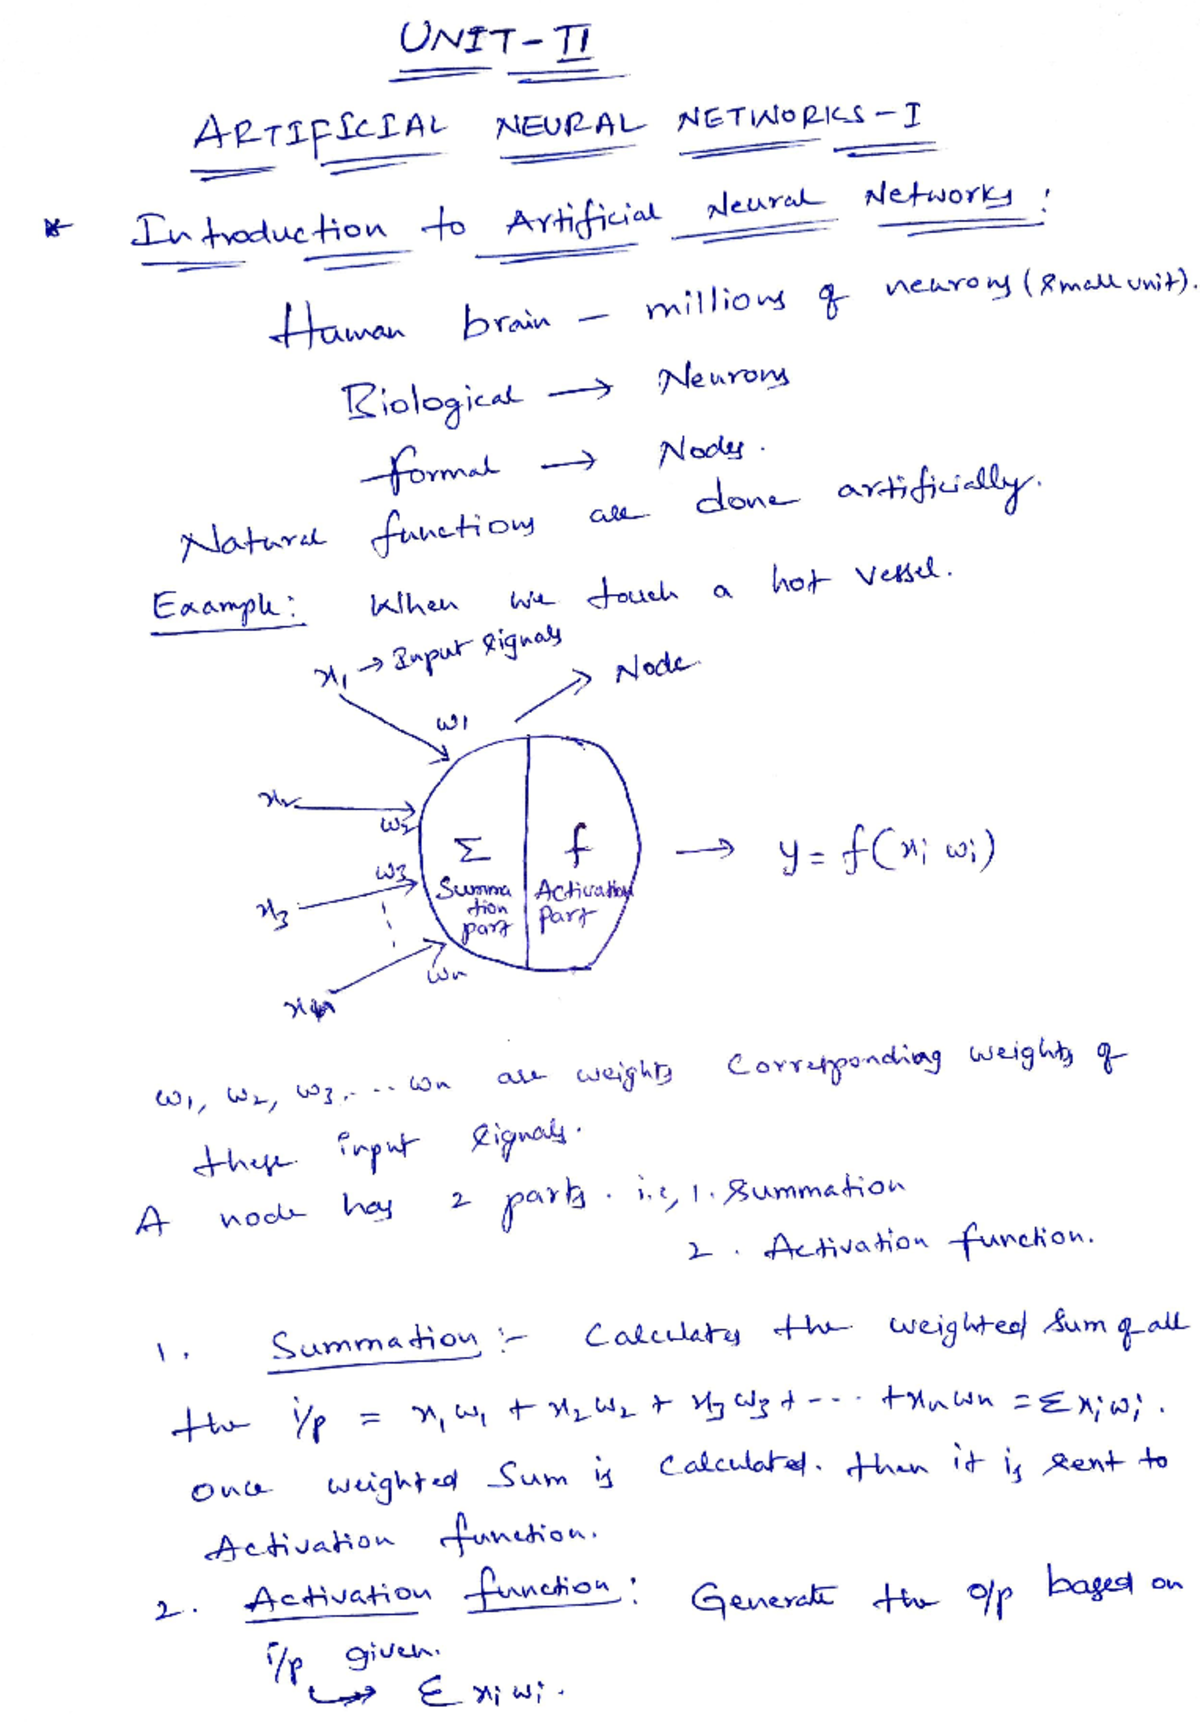 UNIT-II
ARTIFICIAL NEURAL NETWORKS-I
* Introduction to Artificial Neural Networks:
Human brain - millions of neurons (small unit).
Biological → Neurons
formal → Nodes.
Natural functions are done artificially.
Example: When we touch a hot vessel.
x1 → Input signals
Node
w1
x2
w2
Σ f → y = f(xi wi)
w3
Summa Activation
x3
tion part
part
wn
xn
w1, w2, w3, ... wn are weights corresponding weights of
these input signals.
A node has 2 parts. i.e, 1. Summation
2. Activation function.
1. Summation :- Calculates the weighted sum of all
the i/p = x1w1 + x2w2 + x3w3 + --- + xnwn = Σxiwi.
once weighted sum is calculated. then it is sent to
Activation function.
2. Activation function: Generate the o/p based on
i/p given.
↳ Σ xiwi.